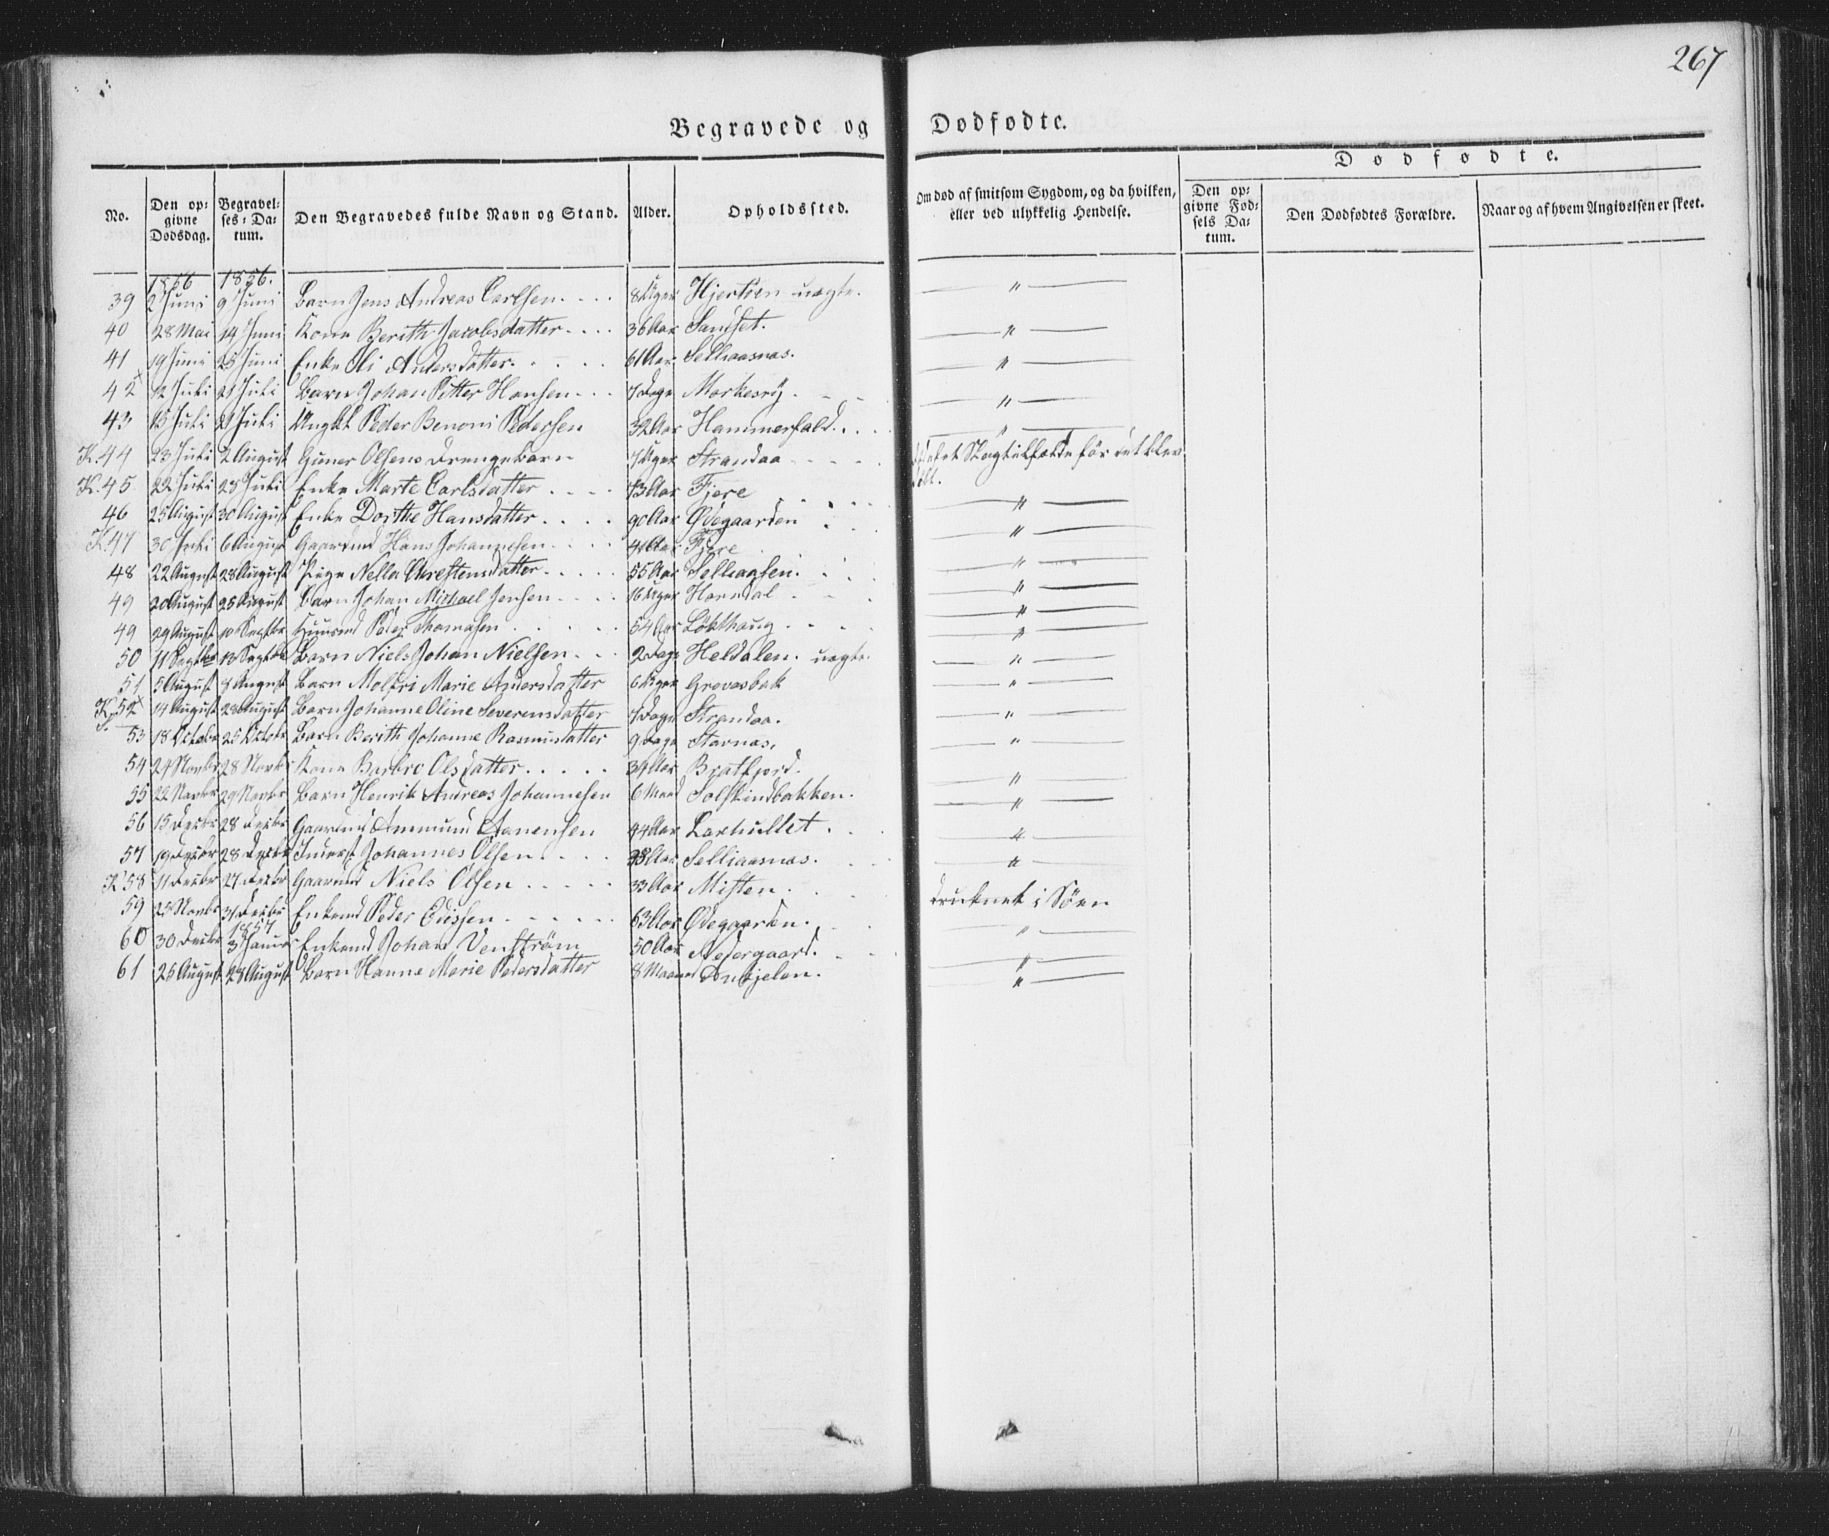 267
Begravede og Dødfødte.
Dødfødte.
No.
Den op-givne Dødsdag.
Begravel-ses-Da-tum.
Den Begravedes fulde Navn og Stand.
Alder.
Opholdssted.
Om død af smitsom Sygdom, og da hvilken, eller ved ulykkelig Hendelse.
Den op-givne Fød-sels Da-tum.
Den Dødfødtes Forældre.
Naar og af hvem Angivelsen er skeet.
1856 1856.
39 2 Juni 9 Juni Barn Jens Andreas Carlsen 8 Uger Hjertøen uægte. "
40 28 Mai 14 Juni Kone Berith Jacobsdatter 36 Aar Sandset. "
41 19 Juni 25 Juni Enke Oli Andersdatter 61 Aar Selliaasnæs. "
42 12 Juli 21 Juli Barn Johan Petter Hansen 7 Dage Morkesvig "
43 15 Juli 21 Juli Ungkl Peder Benoni Pedersen 32 Aar Hammerfald "
K. 44 23 Juli 2 August Guner Olsens Drengebarn 7 Uger Strandaa
K. 45 22 Juli 28 Juli Enke Marte Carlsdatter 73 Aar Fjere "
46 25 August 30 August Enke Dorthe Hansdatter 90 Aar Ødegaarden "
K. 47 30 Juli 6 August Gaardmd Hans Johannesen 41 Aar Fjere "
48 22 August 28 August Pige Nella Chrestensdatter 55 Aar Selliaasen "
49 20 August 25 August Barn Johan Michael Jensen 16 Uger Horndal "
49 29 August 10 Septbr Huusmd Peder Thomasen 54 Aar Løkthaug "
50 11 Septbr 13 Septbr Barn Niels Johan Nielsen 2 Dage Heldalen uægte "
51 5 August 9 August Barn Molfri Marie Andersdatter 6 Uger Grovasbak "
K. 52 14 August 28 August Barn Johanne Oline Severensdatter 7 Dage Strandaa. "
53 18 Octobr 25 Octobr Barn Berith Johanne Rasmusdatter 9 Dage Starnæs. "
54 24 Novbr 28 Novbr Kone Barbro Olsdatter 39 Aar Bratfjord. "
55 22 Novbr 29 Novbr Barn Henrik Andreas Johannesen 6 Maand Solskindbakken. "
56 15 Decbr 28 Decbr Gaardmd Ammund Aanensen 44 Aar Laxhullet. "
57 19 Decbr 28 Decbr Inderst Johannes Olsen Aar Selliaasnæs. "
K. 58 11 Decbr 27 Decbr Gaardmd Niels Olsen 33 Aar Misten. druknet i Søen
59 25 Novbr 31 Decbr Enkemd Peder 63 Aar Ødegaarden. "
1857
60 30 Decbr 3 Januar Enkemd Johan Venstrøm 50 Aar Nedergaard. "
61 25 August 28 August Barn Hanne Marie Pedersdatter 8 Maaned "